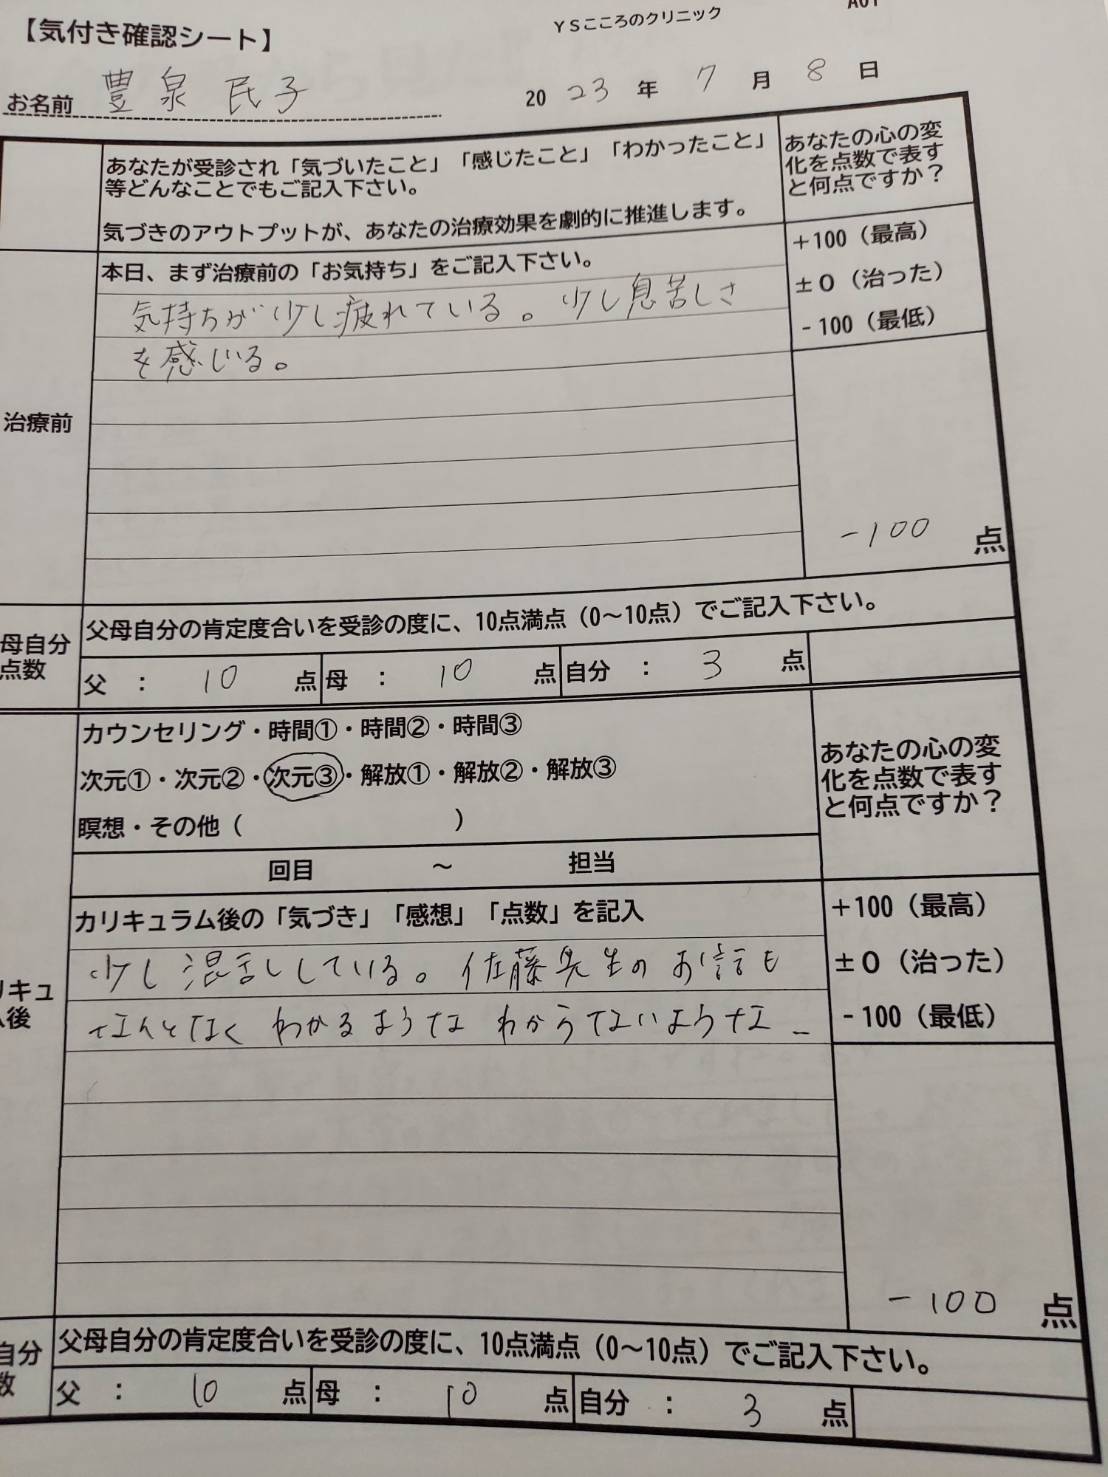 【気付き確認シート】
YSこころのクリニック
A01
お名前 豊泉 民子
2023年 7月 8日
あなたが受診され「気づいたこと」「感じたこと」「わかったこと」
等どんなことでもご記入下さい。
気づきのアウトプットが、あなたの治療効果を劇的に推進します。
あなたの心の変
化を点数で表す
と何点ですか？
治療前
本日、まず治療前の「お気持ち」をご記入下さい。
気持ちが少し疲れている。少し息苦しさ
を感じる。
+100（最高）
±0（治った）
-100（最低）
-100 点
母自分
点数
父母自分の肯定度合いを受診の度に、10点満点（0～10点）でご記入下さい。
父 ： 10 点 母 ： 10 点 自分 ： 3 点
カウンセリング・時間①・時間②・時間③
次元①・次元②・次元③・解放①・解放②・解放③
瞑想・その他（ ）
回目 ～ 担当
あなたの心の変
化を点数で表す
と何点ですか？
リキュ
ム後
カリキュラム後の「気づき」「感想」「点数」を記入
少し混乱している。佐藤先生のお話も
なんとなくわかるようなわからないような_
+100（最高）
±0（治った）
-100（最低）
-100 点
自分
数
父母自分の肯定度合いを受診の度に、10点満点（0～10点）でご記入下さい。
父 ： 10 点 母 ： 10 点 自分 ： 3 点